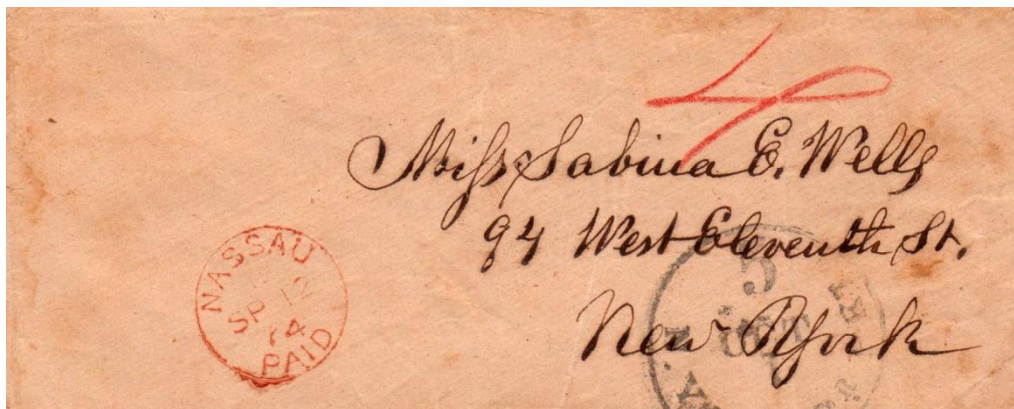 4
Miss Sabina E. Wells
94 West Eleventh St.
New York
NASSAU
SP 12
64
PAID
5